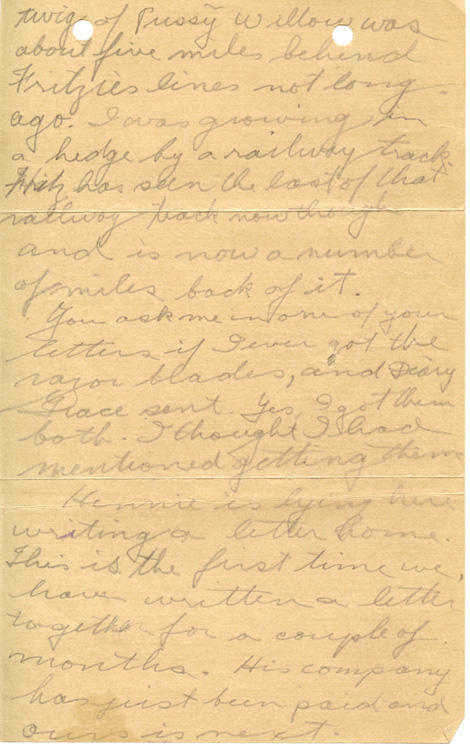 twig of Pussy Willow was
about five miles behind
Fritzies lines not long
ago. I was growing in
a hedge by a railway track.
Fritz has seen the last of that
railway track now though
and is now a number
of miles back of it.
You ask me in one of your
letters if I ever got the
razor blades, and Diary
Grace sent. Yes, I got them
both. I thought I had
mentioned getting them
Hennie is lying here
writing a letter home.
This is the first time we,
have written a letter
together for a couple of
months. His company
has just been paid and
ours is next.